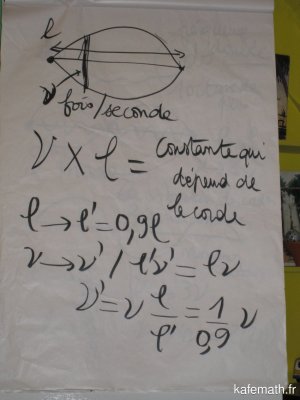 ℓ
ν fois/seconde
ν × ℓ = constante qui
dépend de
la corde
ℓ → ℓ' = 0,9ℓ
ν → ν' / ℓ'ν' = ℓν
ν' = ν ℓ/ℓ' = 1/0,9 ν
kafemath.fr